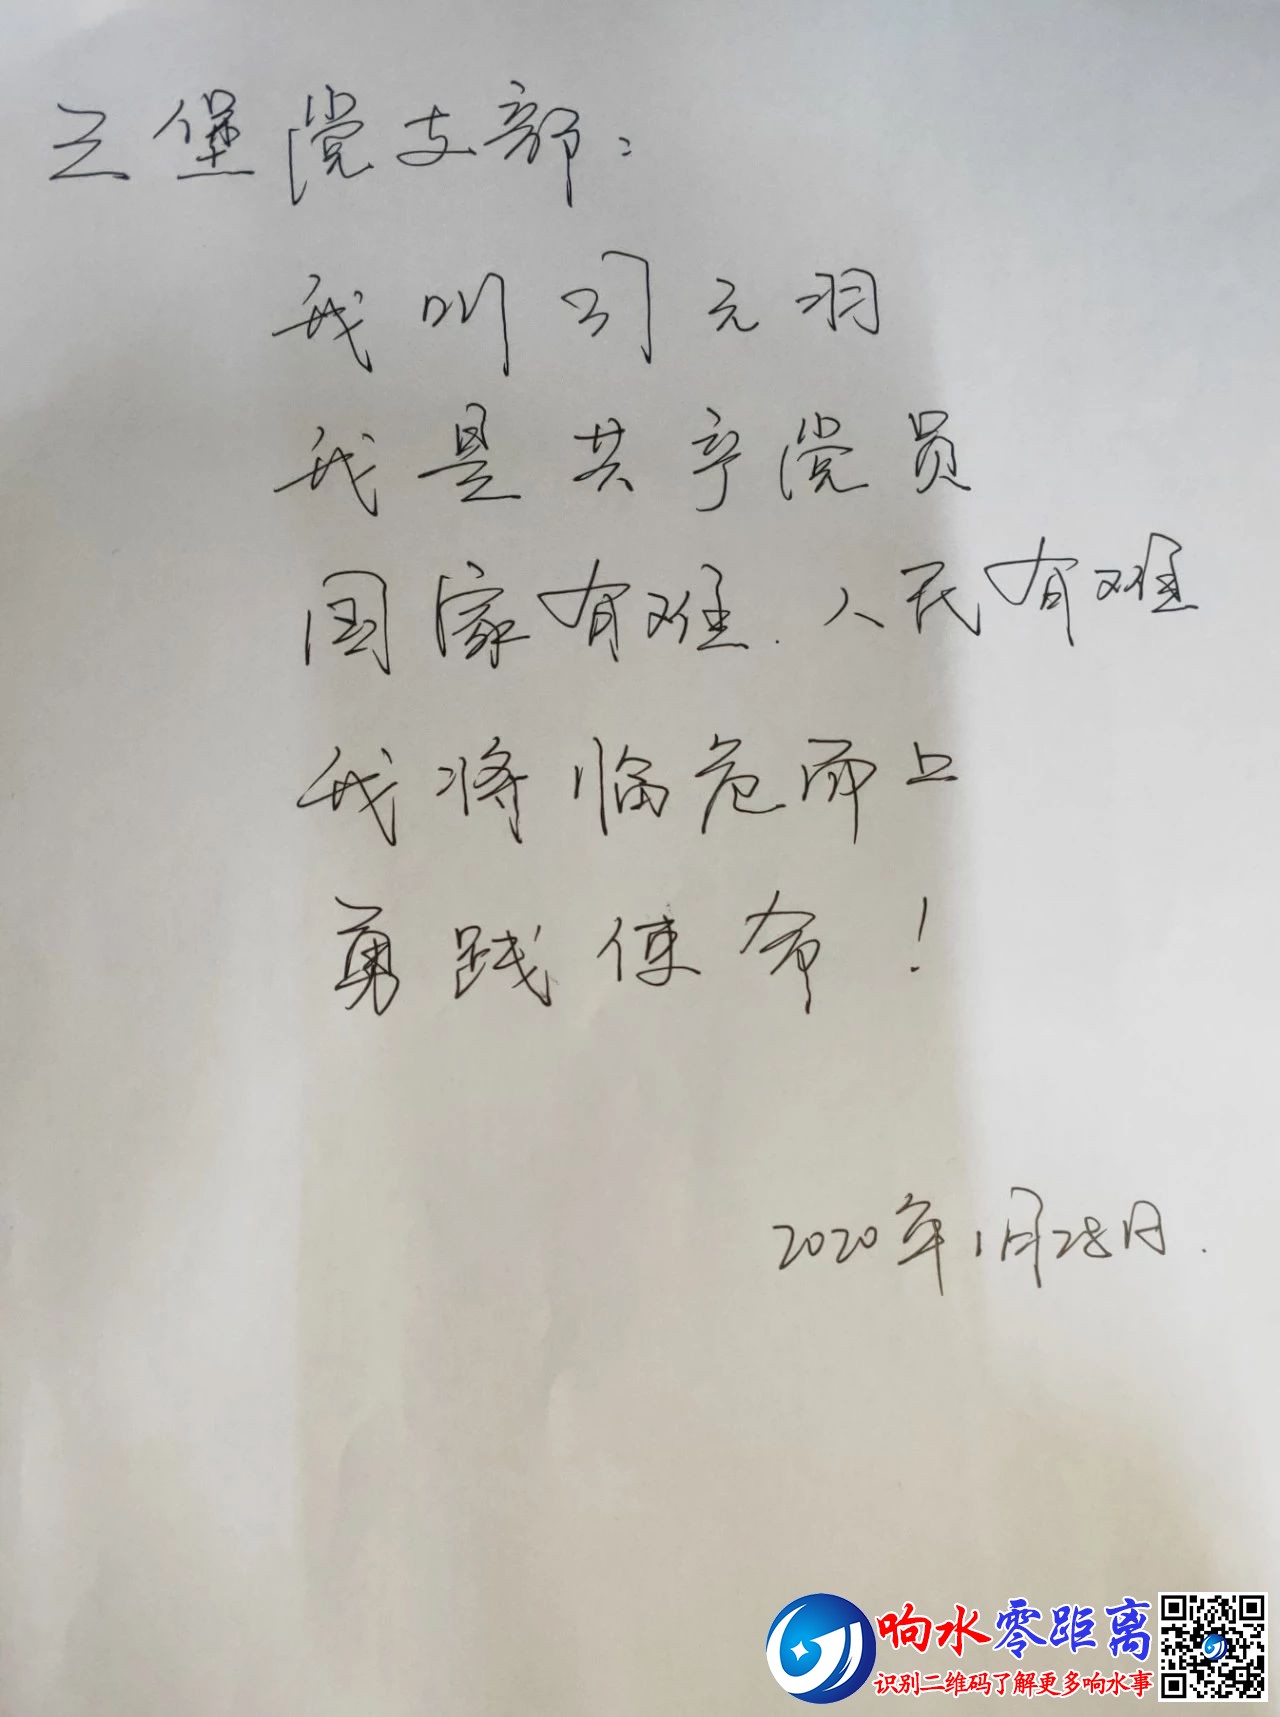 三堡党支部：
我叫司元羽
我是共产党员
国家有难.人民有难
我将临危而上
勇践使命！
2020年1月28日.
响水零距离
识别二维码了解更多响水事